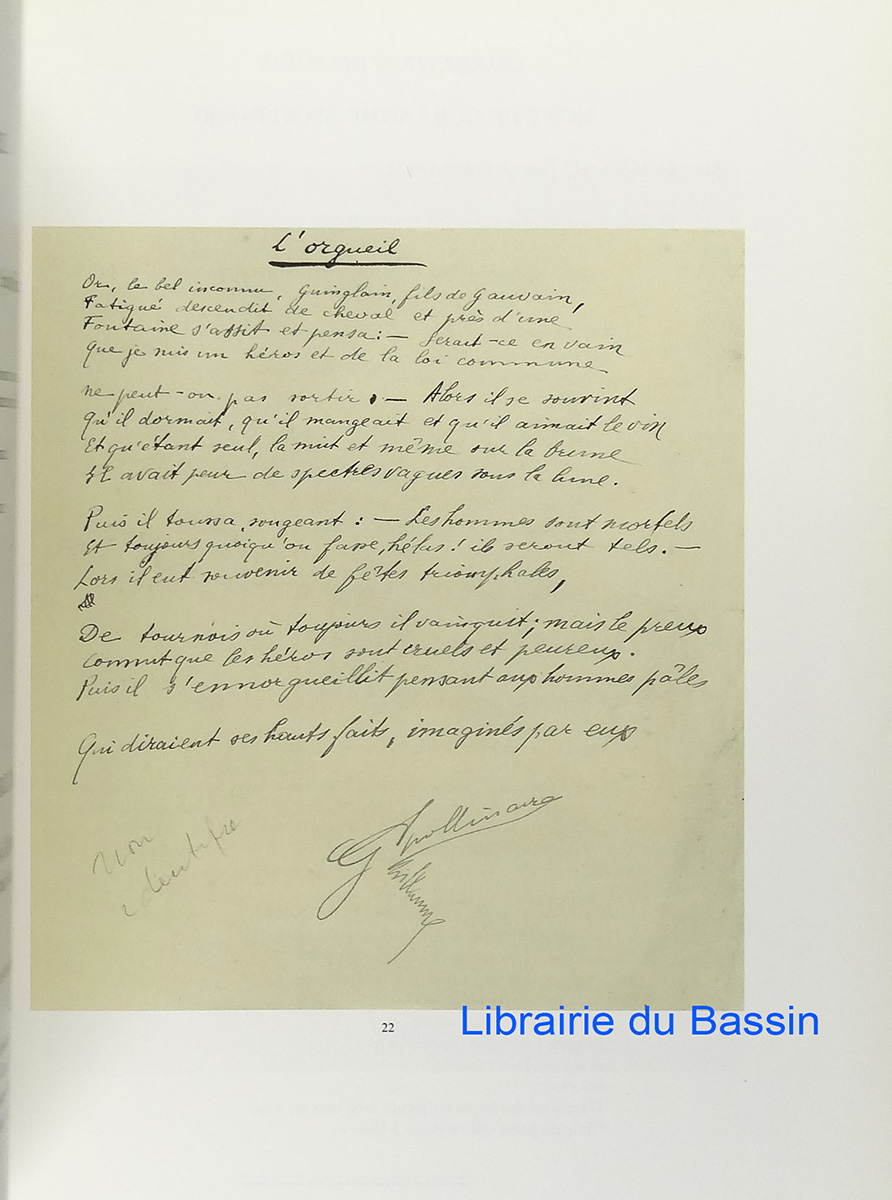 L'orgueil
Or, le bel inconnu, Guinglain, fils de Gauvain,
Fatigué descendit de cheval et près d'une
Fontaine s'assit et pensa : — Serait-ce en vain
Que je suis un héros et de la loi commune
ne peut-on pas sortir. — Alors il se souvint
Qu'il dormait, qu'il mangeait et qu'il aimait le vin
Et qu'étant seul, la nuit et même sur la brune
Il avait peur de spectres vagues sous la lune.
Puis il toussa, songeant : — Les hommes sont mortels
Et toujours quoiqu'on fasse, hélas ! ils seront tels. —
Lors il eut souvenir de fêtes triomphales,
De tournois où toujours il vainquit ; mais le preux
connut que les héros sont cruels et peureux.
Puis il s'ennorgueillit pensant aux hommes pâles
Qui diraient ses hauts faits, imaginés par eux
G Apollinaire
uillaume
non
identifié
22
Librairie du Bassin